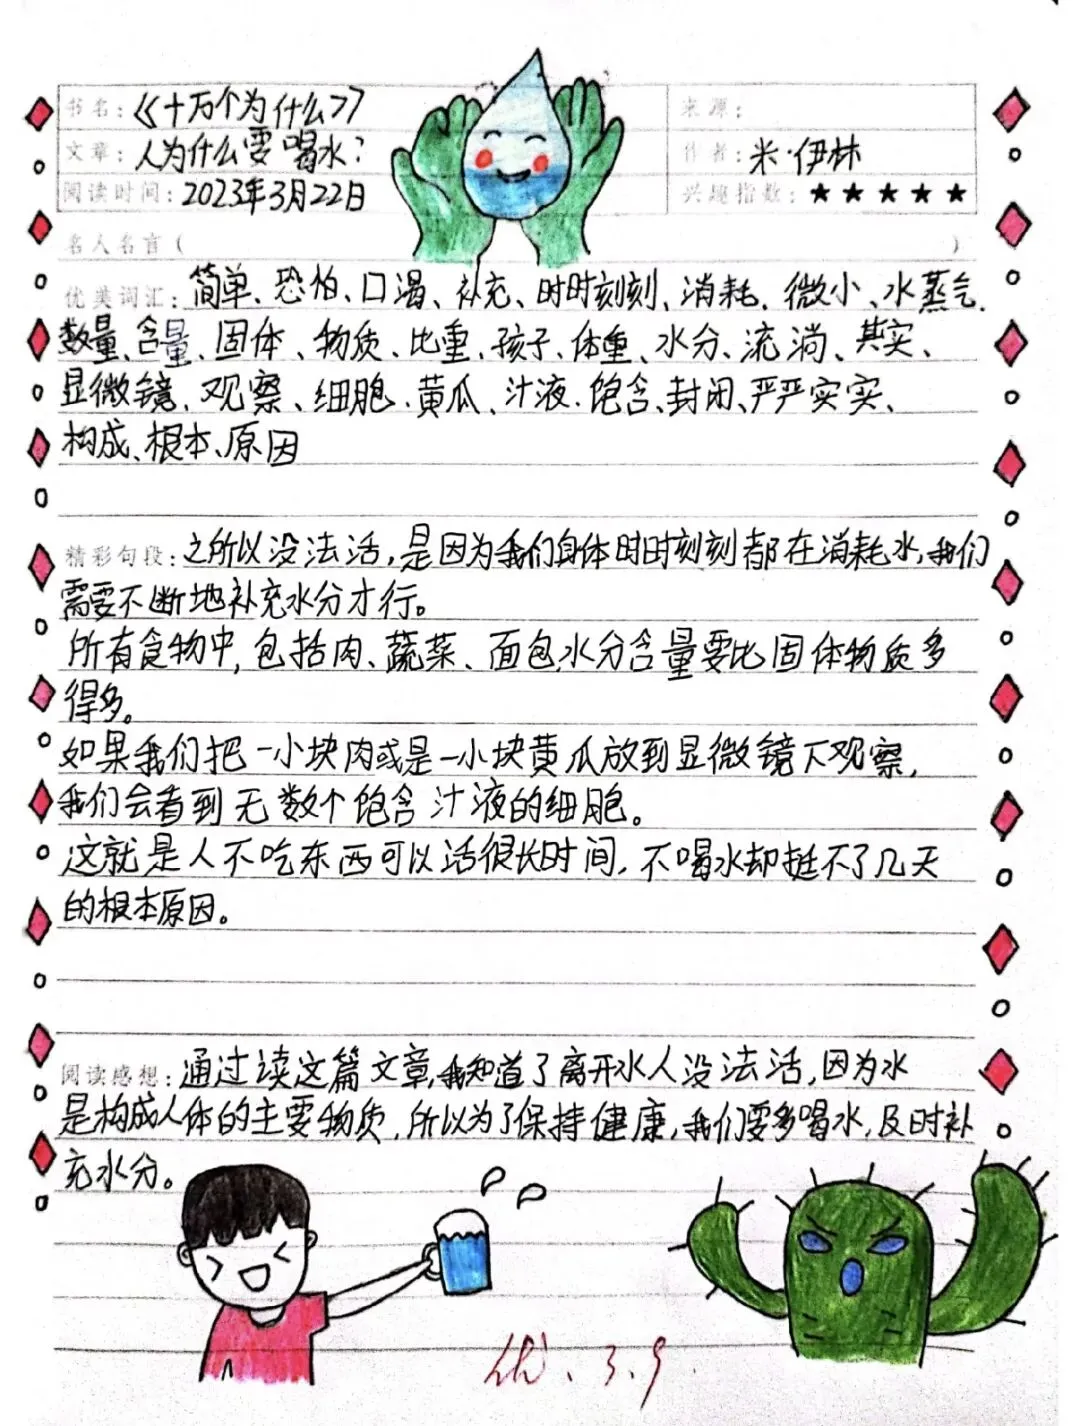 书名：《十万个为什么》 来源：
文章：人为什么要喝水？ 作者：米·伊林
阅读时间：2023年3月22日 兴趣指数：★★★★★
名人名言（ ）
优美词汇：简单、恐怕、口渴、补充、时时刻刻、消耗、微小、水蒸气、
数量、含量、固体、物质、比重、孩子、体重、水分、流淌、其实、
显微镜、观察、细胞、黄瓜、汁液、饱含、封闭、严严实实、
构成、根本、原因
精彩句段：之所以没法活，是因为我们身体时时刻刻都在消耗水，我们
需要不断地补充水分才行。
所有食物中，包括肉、蔬菜、面包，水分含量要比固体物质多
得多。
如果我们把一小块肉或是一小块黄瓜放到显微镜下观察，
我们会看到无数个饱含汁液的细胞。
这就是人不吃东西可以活很长时间，不喝水却挺不了几天
的根本原因。
阅读感想：通过读这篇文章，我知道了离开水人没法活，因为水
是构成人体的主要物质，所以为了保持健康，我们要多喝水，及时补
充水分。
优.3.9